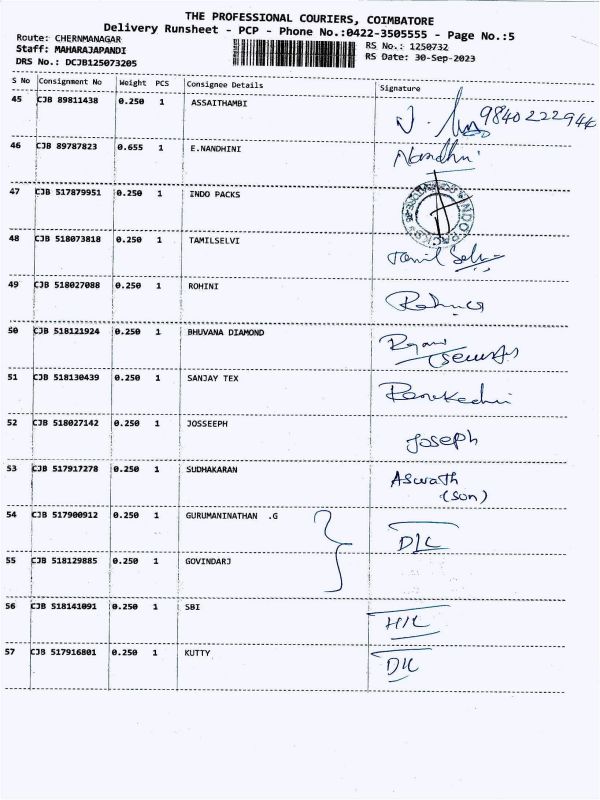 THE PROFESSIONAL COURIERS, COIMBATORE
Delivery Runsheet - PCP - Phone No.:0422-3505555 - Page No.:5
Route: CHERNMANAGAR
RS No.: 1250732
Staff: MAHARAJAPANDI
RS Date: 30-Sep-2023
DRS No.: DCJB125073205
S No Consignment No Weight PCS Consignee Details Signature
45 CJB 89811438 0.250 1 ASSAITHAMBI 9840222944
46 CJB 89787823 0.655 1 E.NANDHINI Nandhni
47 CJB 517879951 0.250 1 INDO PACKS INDO PACKS
48 CJB 518073818 0.250 1 TAMILSELVI Tamil Selvi
49 CJB 518027088 0.250 1 ROHINI
50 CJB 518121924 0.250 1 BHUVANA DIAMOND (Security)
51 CJB 518130439 0.250 1 SANJAY TEX
52 CJB 518027142 0.250 1 JOSSEEPH Joseph
53 CJB 517917278 0.250 1 SUDHAKARAN Aswath
(son)
54 CJB 517900912 0.250 1 GURUMANINATHAN .G D/L
55 CJB 518129885 0.250 1 GOVINDARJ
56 CJB 518141091 0.250 1 SBI H/L
57 CJB 517916801 0.250 1 KUTTY D/L